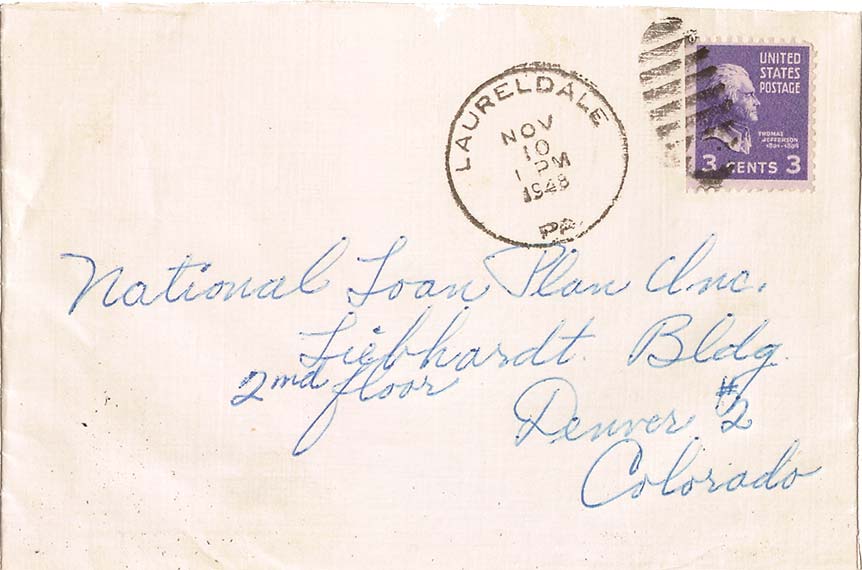 LAURELDALE
NOV
10
1 PM
1948
PA.
UNITED
STATES
POSTAGE
THOMAS
JEFFERSON
1801-1809
3 CENTS 3
National Loan Plan Inc.
Liebhardt. Bldg.
2nd floor
Denver #2
Colorado